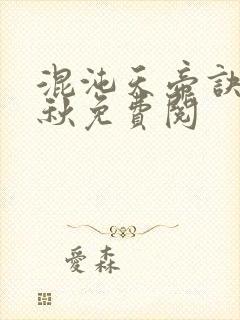 混沌天帝訣
秋免費閱
愛森